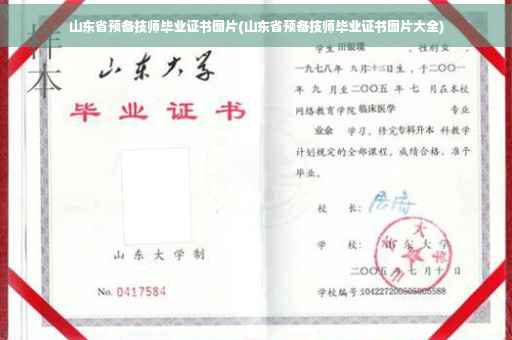 山东省预备技师毕业证书图片(山东省预备技师毕业证书图片大全)
样本
山东大学
毕业证书
山东大学制
No. 0417584
学生 田银瑞 ，性别女，
一九七八年 九月十三日生，于二〇〇一
年 九 月至二〇〇五 年 七 月在本校
网络教育学院 临床医学 专业
业余 学习，修完专科升本 科教学
计划规定的全部课程，成绩合格，准予
毕业。
校 长：
学 校：山东大学
二〇〇五年七月十日
学校编号:104227200505005588